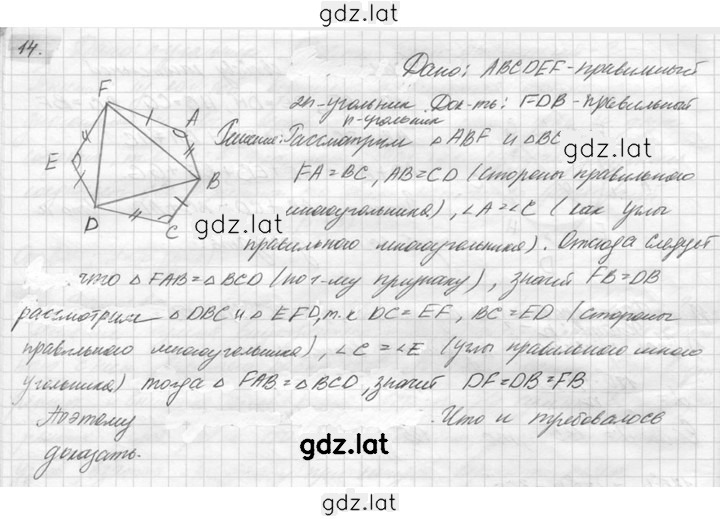 gdz.lat
14.
Дано: ABCDEF-правильный
2n-угольник. Док-ть: FDB-правильный
n-угольник
F
A
E
B
D
C
Решение: Рассмотрим △ABF и △BC
gdz.lat
FA=BC, AB=CD (стороны правильного
многоугольника), ∠A=∠C (как углы
gdz.lat
правильного многоугольника). Отсюда следует
что △FAB=△BCD (по 1-му признаку), значит FB=DB
рассмотрим △DBC и △EFD, т.к DC=EF, BC=ED (стороны
правильного многоугольника), ∠C=∠E (углы правильного много
угольника) тогда △FAB=△BCD, значит DF=DB=FB
Поэтому . Что и требовалось
доказать.
gdz.lat
gdz.lat